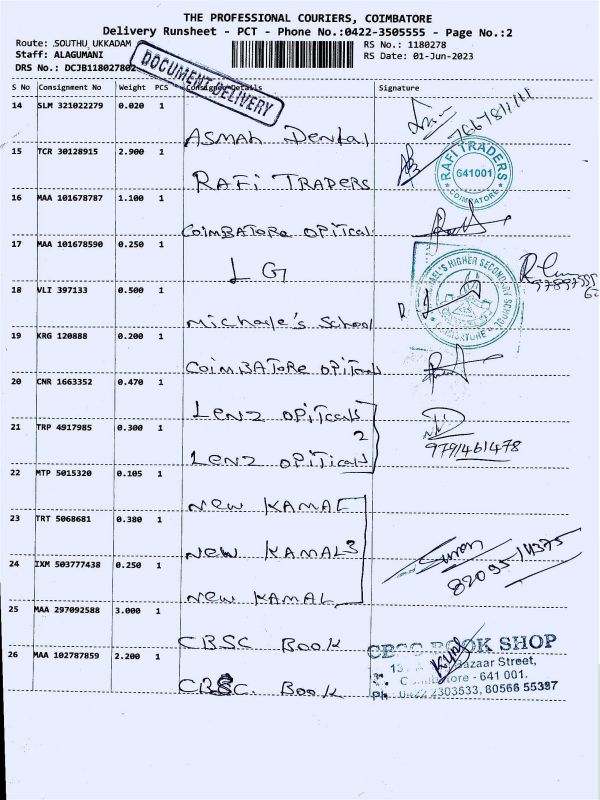 THE PROFESSIONAL COURIERS, COIMBATORE
Delivery Runsheet - PCT - Phone No.:0422-3505555 - Page No.:2
Route: SOUTHU_UKKADAM
RS No.: 1180278
Staff: ALAGUMANI
RS Date: 01-Jun-2023
DRS No.: DCJB118027802
DOCUMENT DELIVERY
S No Consignment No Weight PCS Consignee Details Signature
14 SLM 321022279 0.020 1
ASMAh Dental
15 TCR 30128915 2.900 1
RAFI TRADERS
RAFI TRADERS
641001
COIMBATORE
16 MAA 101678787 1.100 1
COIMBATORE OPITCAL
17 MAA 101678590 0.250 1
LG
18 VLI 397133 0.500 1
Michale's School
HIGHER SECONDARY SCHOOL
19 KRG 120888 0.200 1
COIMBATORE
20 CNR 1663352 0.470 1
LENZ OPITCALS
21 TRP 4917985 0.300 1
2
9791461478
LENZ OPITICALS
22 MTP 5015320 0.105 1
NEW KAMAL
23 TRT 5068681 0.380 1
NEW KAMAL 3
24 IXM 503777438 0.250 1
82095-14375
NEW KAMAL
25 MAA 297092588 3.000 1
CBSC BOOK
BOOK SHOP
26 MAA 102787859 2.200 1
Bazaar Street,
Coimbatore - 641 001.
CBSC. BOOK
Ph: 0422 2303533, 80566 55397